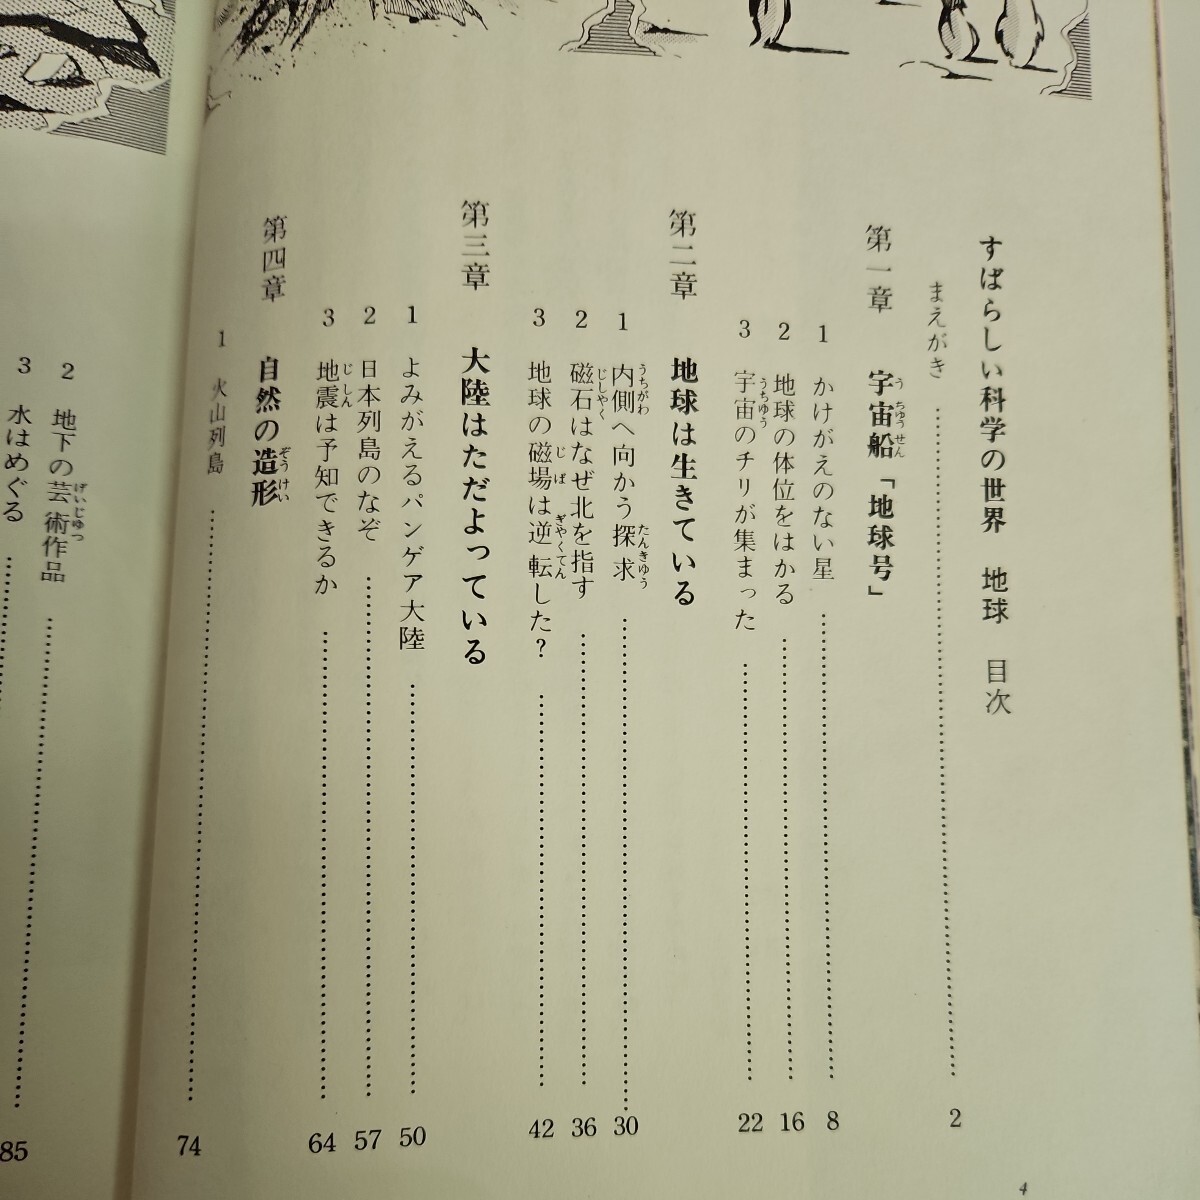 すばらしい科学の世界 地球 目次
まえがき……2
第一章 宇宙船「地球号」
1 かけがえのない星……8
2 地球の体位をはかる……16
3 宇宙のチリが集まった……22
第二章 地球は生きている
1 内側へ向かう探求……30
2 磁石はなぜ北を指す……36
3 地球の磁場は逆転した?……42
第三章 大陸はただよっている
1 よみがえるパンゲア大陸……50
2 日本列島のなぞ……57
3 地震は予知できるか……64
第四章 自然の造形
1 火山列島……74
2 地下の芸術作品
3 水はめぐる……85
4